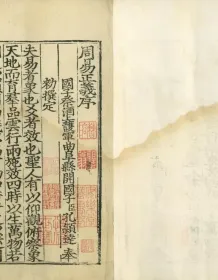 周易正義序
國子祭酒上護軍曲阜縣開國子臣孔穎達奉
勑撰定
夫易者象也爻者效也聖人有以仰觀俯察象
天地而育羣品雲行雨施效四時以生萬物若